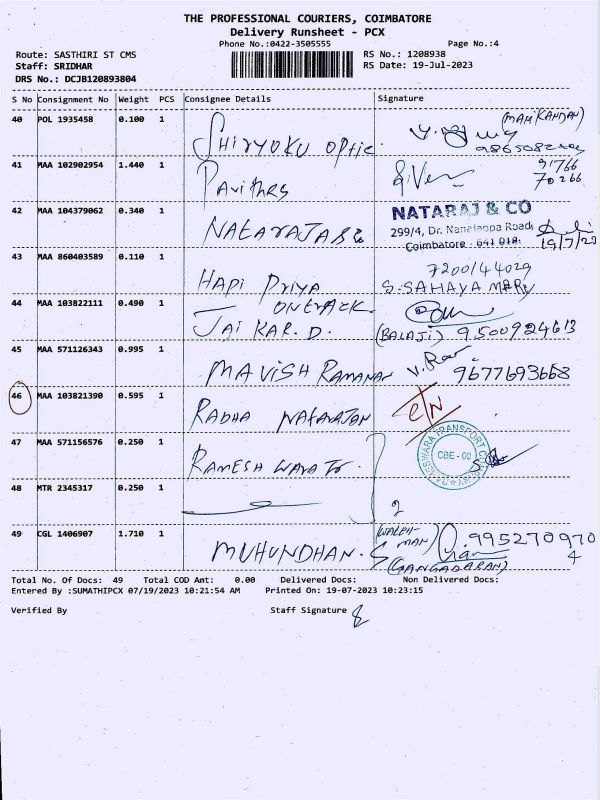 THE PROFESSIONAL COURIERS, COIMBATORE
Delivery Runsheet - PCX
Phone No.:0422-3505555
Page No.:4
Route: SASTHIRI ST CMS
RS No.: 1208938
Staff: SRIDHAR
RS Date: 19-Jul-2023
DRS No.: DCJB120893804
S No Consignment No Weight PCS Consignee Details Signature
40 POL 1935458 0.100 1 SHIRYOKU OPTIC (MANIKANDAN)
41 MAA 102902954 1.440 1 91766
70266
42 MAA 104379062 0.340 1 NATARAJ & CO
299/4, Dr. Nanjappa Road
Coimbatore - 641 018. 19/7/23
43 MAA 860403589 0.110 1 HARI PRIYA 7200144029
S. SAHAYA MARY
44 MAA 103822111 0.490 1 ONETRACK.
JAI KAR. D. (BALAJI) 9500924613
45 MAA 571126343 0.995 1 MAVISH RAMANAN V. Rav 9677693668
46 MAA 103821390 0.595 1 RADHA NATARAJAN
47 MAA 571156576 0.250 1 RAMESH TRANSPORT COMPANY
CBE - 09
48 MTR 2345317 0.250 1 2
49 CGL 1406907 1.710 1 MUHUNDHAN. MAN) 995270970
4
(GANGADARAN)
Total No. Of Docs: 49 Total COD Amt: 0.00 Delivered Docs: Non Delivered Docs:
Entered By :SUMATHIPCX 07/19/2023 10:21:54 AM Printed On: 19-07-2023 10:23:15
Verified By Staff Signature